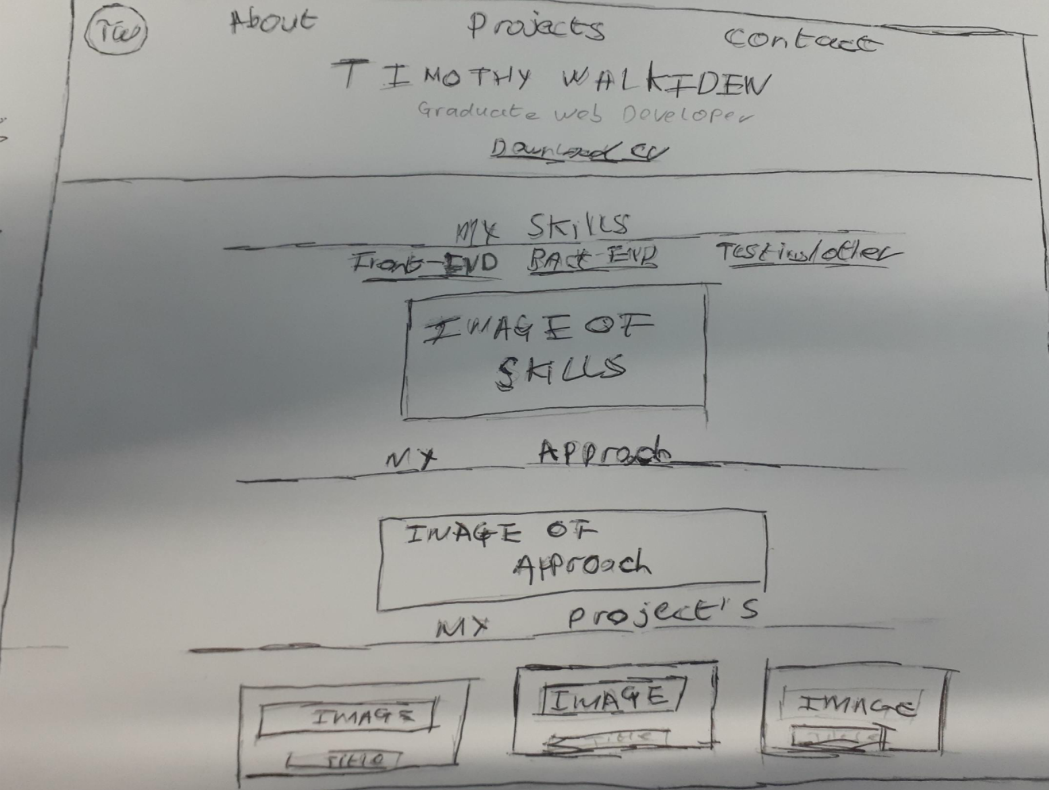 TW About Projects Contact
TIMOTHY WALKIDEN
Graduate Web Developer
Download CV
MY SKILLS
Front-END BACK-END Testing/other
IMAGE OF
SKILLS
MY Approach
IMAGE OF
Approach
MY project's
IMAGE IMAGE IMAGE
Title Title Title